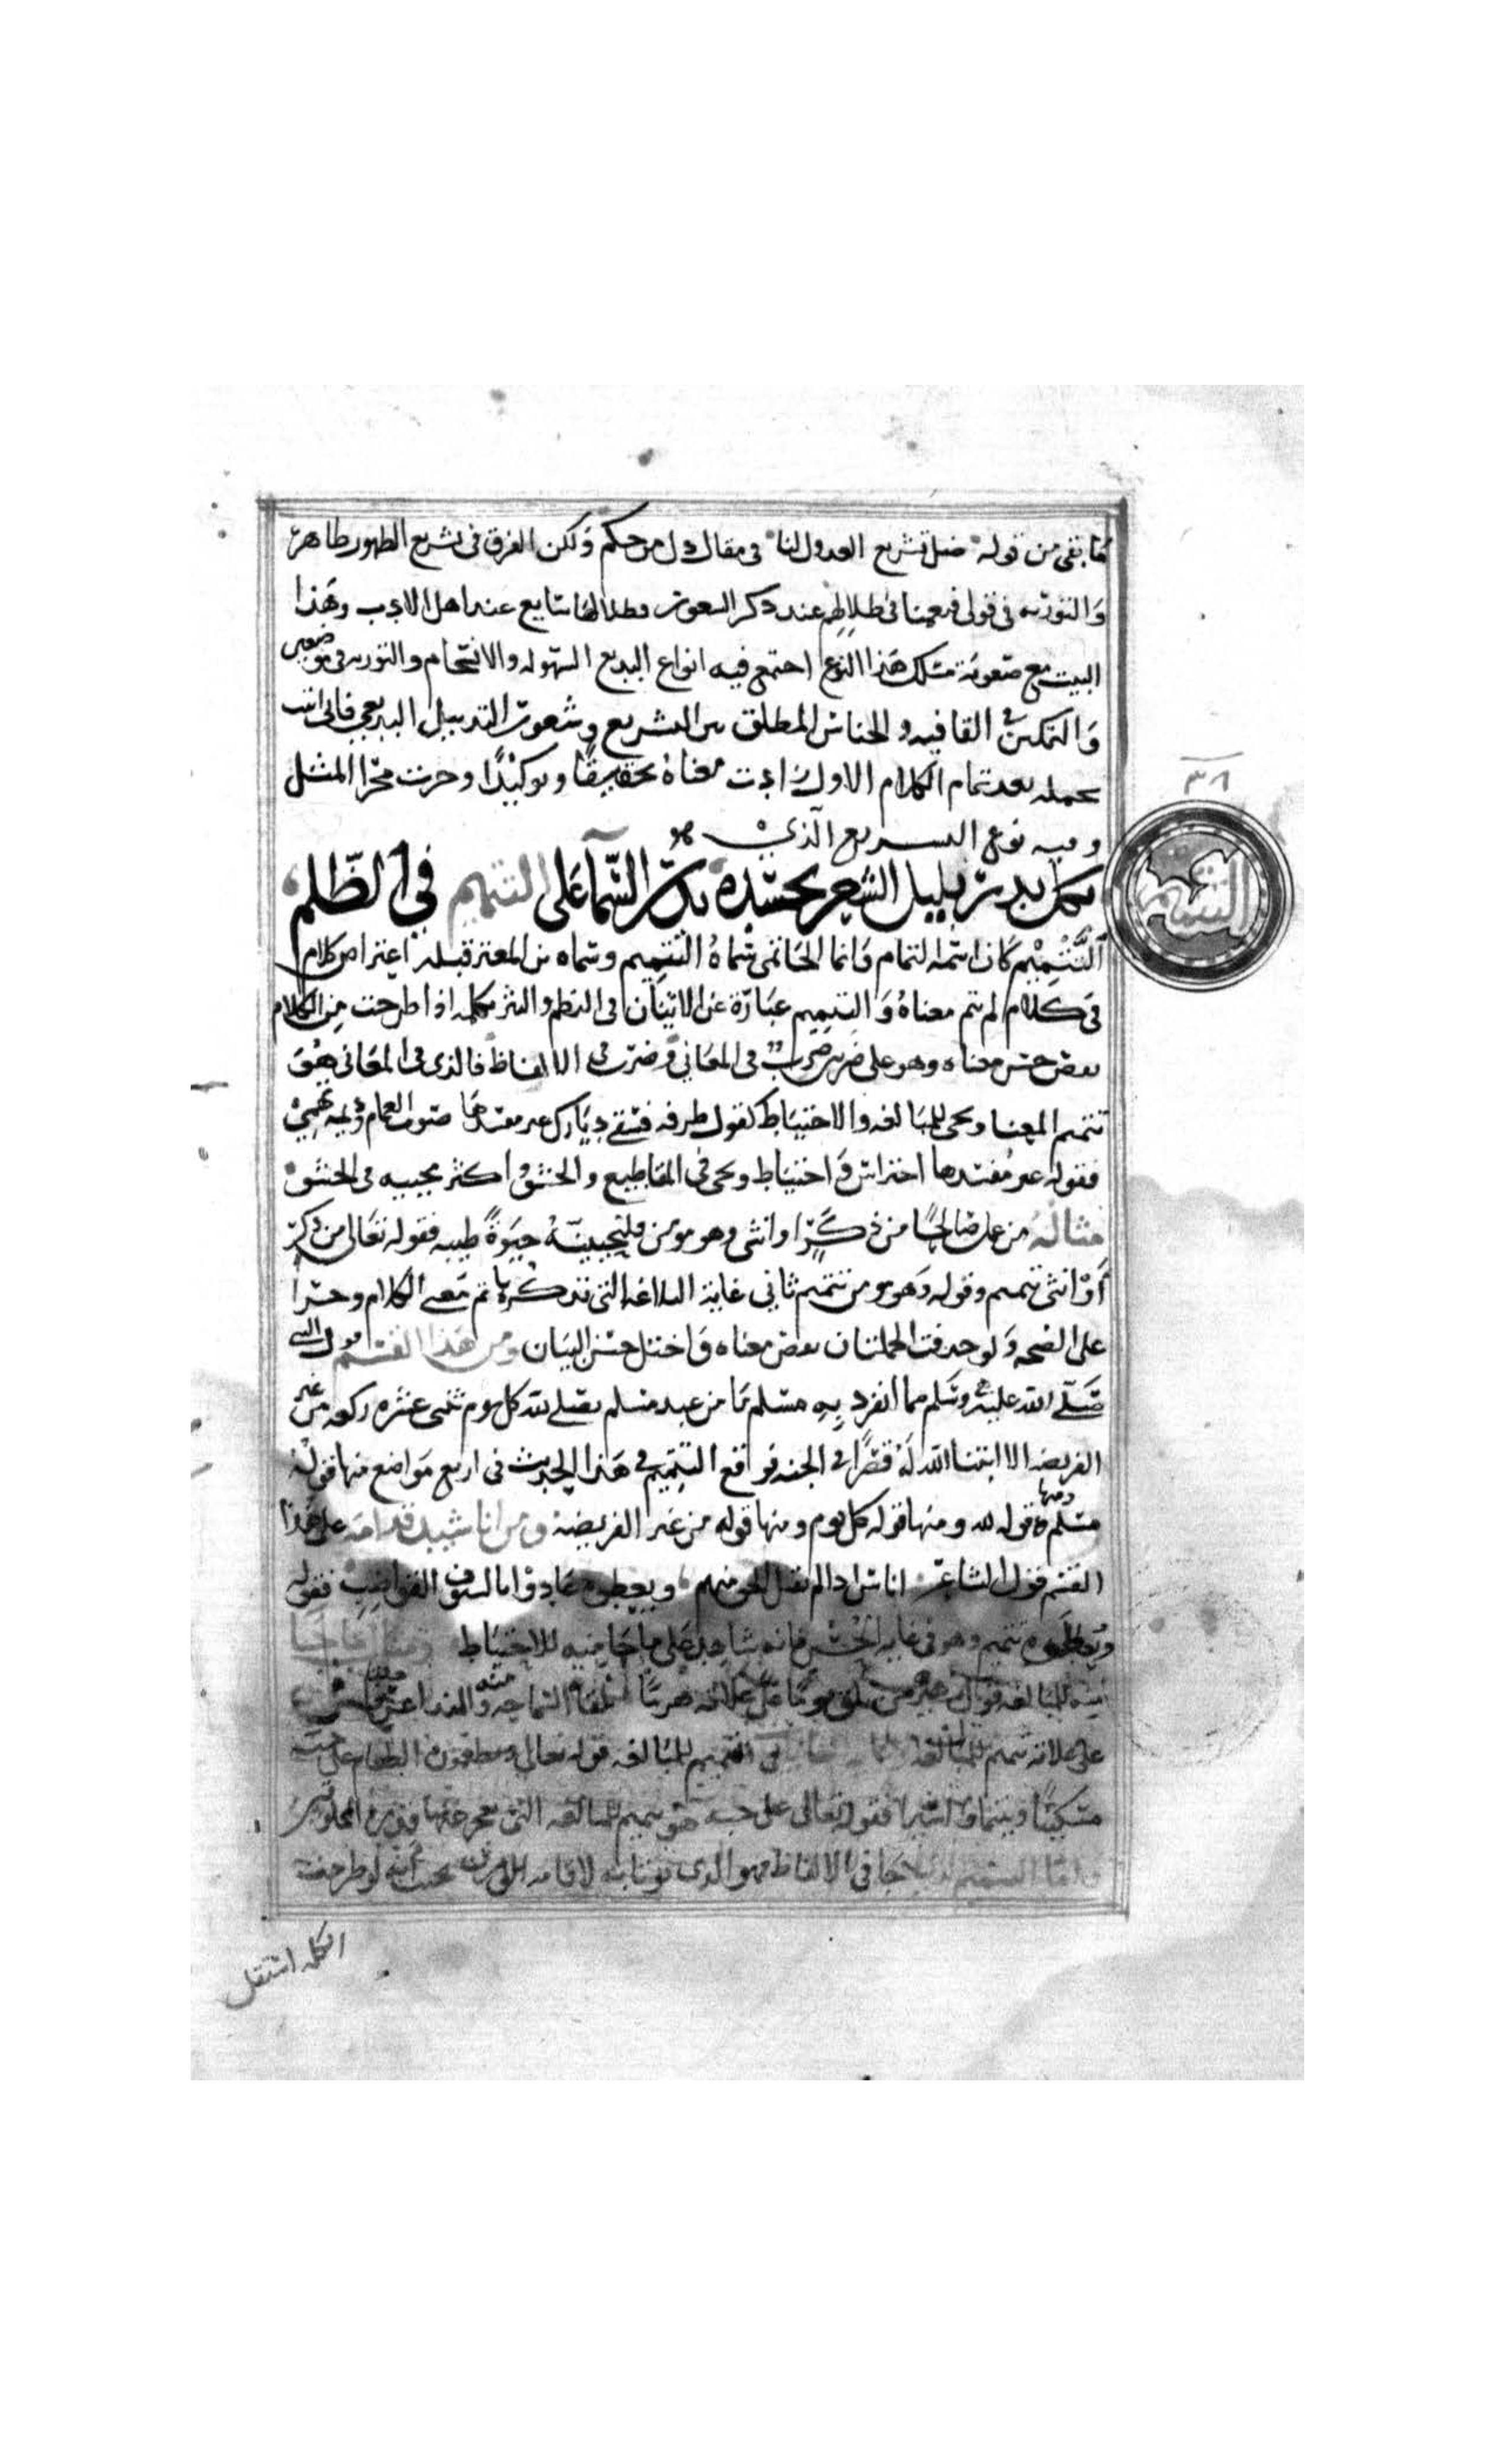 ما بقى من قوله ضل تشريع العدول لنا فى مقال دل من حكم ولكن الفرق فى تشريع الظهور ظاهر
والتوريه فى قولى فهمنا فى ظلالهم عند ذكر البيوت وظلالها شايع عند اهل الادب وهذا
البيت مع صعوبة مسلك هذا النوع اجتمع فيه انواع البديع السهوله والانسجام والتوريه فى
والتمكين فى القافيه والجناس المطلق بين التشريع وشعوت التذييل البديعى فانى اتيت
بجمله بعد تمام الكلام الاول زادت معناه تحقيقًا وتوكيدًا وجرت مجرا المثل
وفيه نوع التسريع الذى هو
بكل بدر بليل الشعر يحسده بدر السّما على التتميم فى الظّلم
٣٨
التتميم
التَّتْمِيْم كان اسمه التمام وانما الحاتمى سماهُ التتميم وسماه بن المعتز قبله اعتراض كلام
فى كلام لم يتم معناهُ والتتميم عبارة عن الاتيان فى النظم والنثر بكلمه اذا طرحت من الكلام
نقص حسن معناه وهو على ضربين ضرب فى المعانى وضرب فى الالفاظ فالذى فى المعانى هو
تتميم المعنا ويجى للمبالغه والاحتياط كقول طرفه فسقى ديارك غير مفسدها صوب الغمام وديمة تهمى
فقوله غير مُفسدها احتراس واحتياط ويجى فى المقاطيع والحشو واكثر مجيبه فى الحشو
مثالهُ من عمل صَالحًا من ذكر او انثى وهو مومن فلنحيينّهُ حيوةً طيبه فقوله تعالى من ذكر
أَوْ انثى تتميم وقوله وهو مومن تتميم ثانى غاية البلاغه التى بذكرها تم معنى الكلام وجرا
على الصحه ولو حذفت الجملتان نقص معناه واختل حسن البيان ومن هذا القسم قول النبى
صَلّى الله عليه وسَلم مما انفرد بِهِ مسلم ما من عبد مسلم يصلى لله كل يوم ثنى عشره ركعه من غير
الفريضه الا ابتنا اللّه لَهُ قصرًا فى الجنه فواقع التتميم فى هذا الحديث فى اربع مواضع منها قوله
مسلم ومنها قوله لله ومنها قوله كل يوم ومنها قوله من غير الفريضة ومن اناشيد قدامه على هذا
القسم قول الشاعر اناس اذا لم يقبل الحق منهم ويعطوه عادوا بالسيوف القواضب فقوله
ويعطوه تتميم وهو فى غاية الحسن فانه شاهد على ما جا فيه للاحتياط ومثال ما جا
للمبالغه قول زهير من يلق يومًا على علاته هرمًا يلقا السماحه منه والندا خلقا
على علاته تتميم للمبالغه فى التتميم للمبالغه قوله تعالى ويطعمون الطعام على حبه
مسكينًا ويتيمًا واسيرا فقوله تعالى على حبه هو تتميم للمبالغه التى تعجز عنها قدرة المخلوقين
واما التتميم الذى جا فى الالفاظ فهو الذى يوتا به لاقامه الوزن بحيث انه لو طرحت
الكلمه استقل